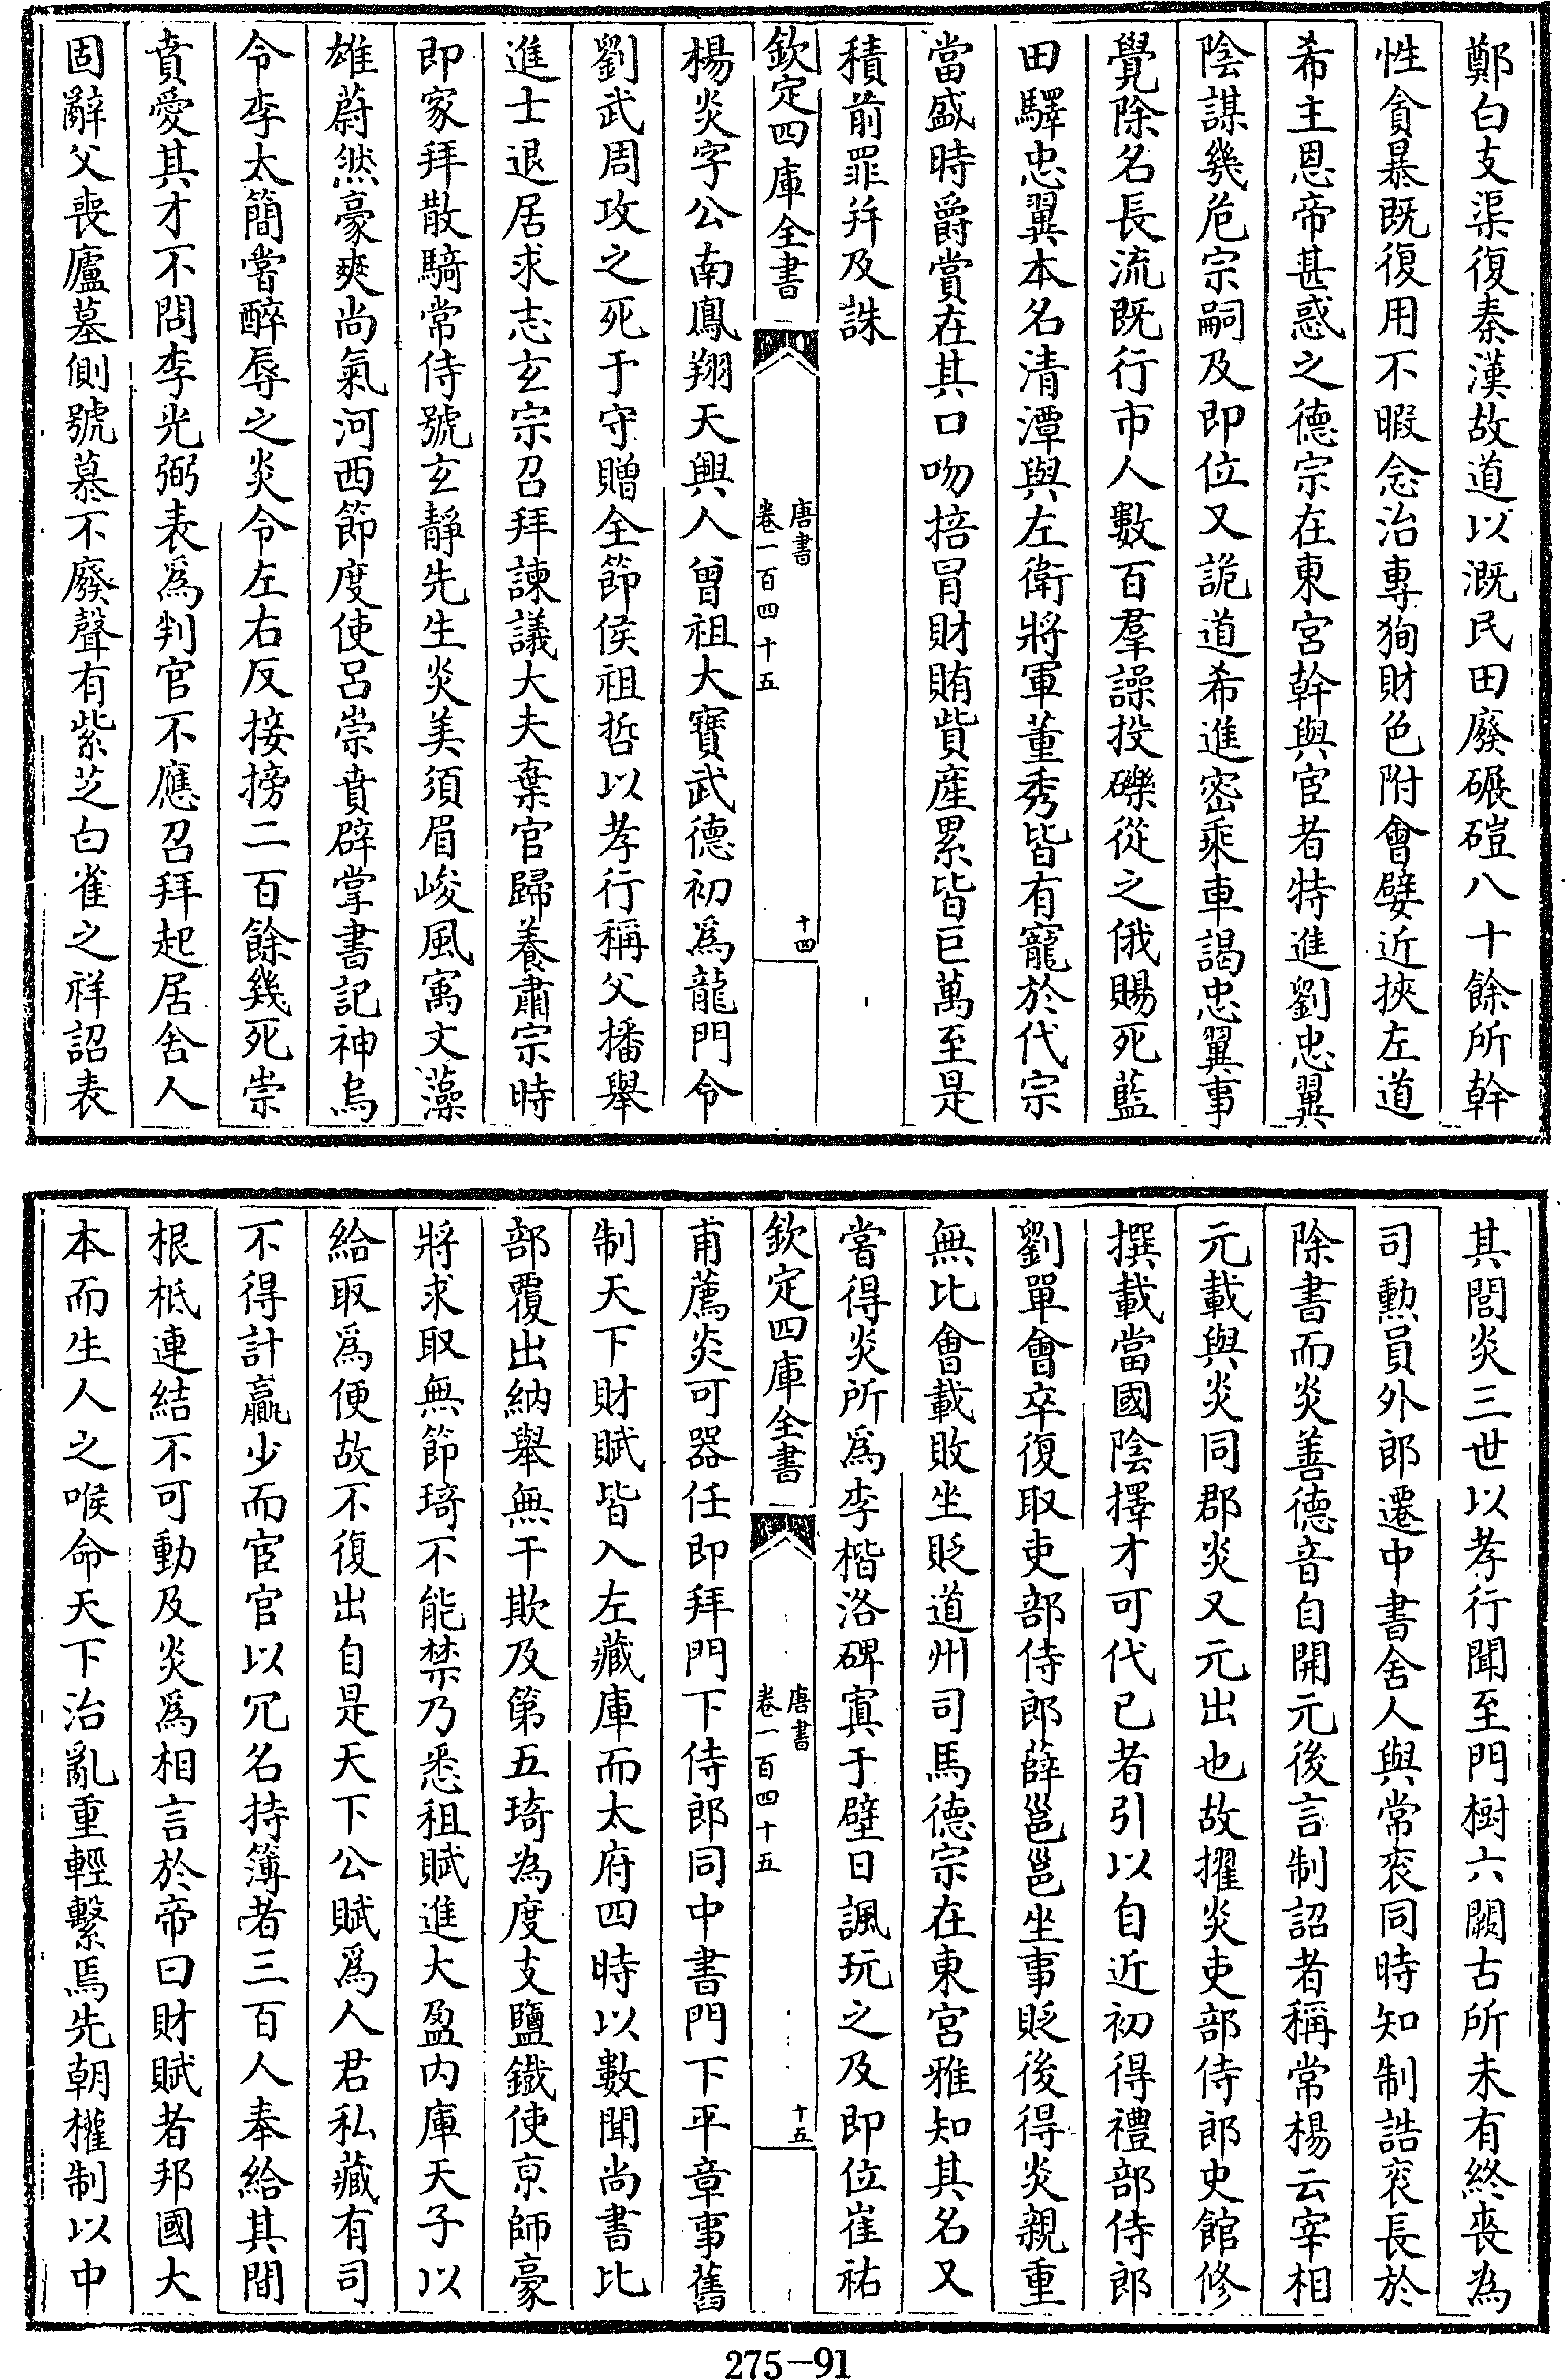 鄭白支渠復秦漢故道以溉民田廢碾磑八十餘所幹
性貪暴既復用不暇念治專狥財色附會嬖近挾左道
希主恩帝甚惑之德宗在東宮幹與宦者特進劉忠翼
陰謀幾危宗嗣及即位又詭道希進密乘車謁忠翼事
覺除名長流既行市人數百羣譟投礫從之俄賜死藍
田驛忠翼本名清潭與左衛將軍董秀皆有寵於代宗
當盛時爵賞在其口吻掊冒財賄貲産累皆巨萬至是
積前罪幷及誅
欽定四庫全書
唐書
卷一百四十五
十四
楊炎字公南鳳翔天興人曾祖大寶武德初爲龍門令
劉武周攻之死于守贈全節侯祖哲以孝行稱父播舉
進士退居求志玄宗召拜諫議大夫棄官歸養肅宗時
即家拜散騎常侍號玄靜先生炎美須眉峻風寓文藻
雄蔚然豪爽尚氣河西節度使呂崇賁辟掌書記神烏
令李太簡嘗醉辱之炎令左右反接搒二百餘幾死崇
賁愛其才不問李光弼表爲判官不應召拜起居舍人
固辭父喪廬墓側號慕不廢聲有紫芝白雀之祥詔表
其閭炎三世以孝行聞至門樹六闕古所未有終喪為
司勲員外郎遷中書舍人與常衮同時知制誥衮長於
除書而炎善德音自開元後言制詔者稱常楊云宰相
元載與炎同郡炎又元出也故擢炎吏部侍郎史館修
撰載當國陰擇才可代已者引以自近初得禮部侍郎
劉單會卒復取吏部侍郎薛邕邕坐事貶後得炎親重
無比會載敗坐貶道州司馬德宗在東宮雅知其名又
嘗得炎所爲李楷洛碑寘于壁日諷玩之及即位崔祐
欽定四庫全書
唐書
卷一百四十五
十五
甫薦炎可器任即拜門下侍郎同中書門下平章事舊
制天下財賦皆入左藏庫而太府四時以數聞尚書比
部覆出納舉無干欺及第五琦為度支鹽鐵使京師豪
將求取無節琦不能禁乃悉租賦進大盈内庫天子以
給取爲便故不復出自是天下公賦爲人君私藏有司
不得計贏少而宦官以冗名持簿者三百人奉給其間
根柢連結不可動及炎爲相言於帝曰財賦者邦國大
本而生人之喉命天下治亂重輕繫焉先朝權制以中
275-91